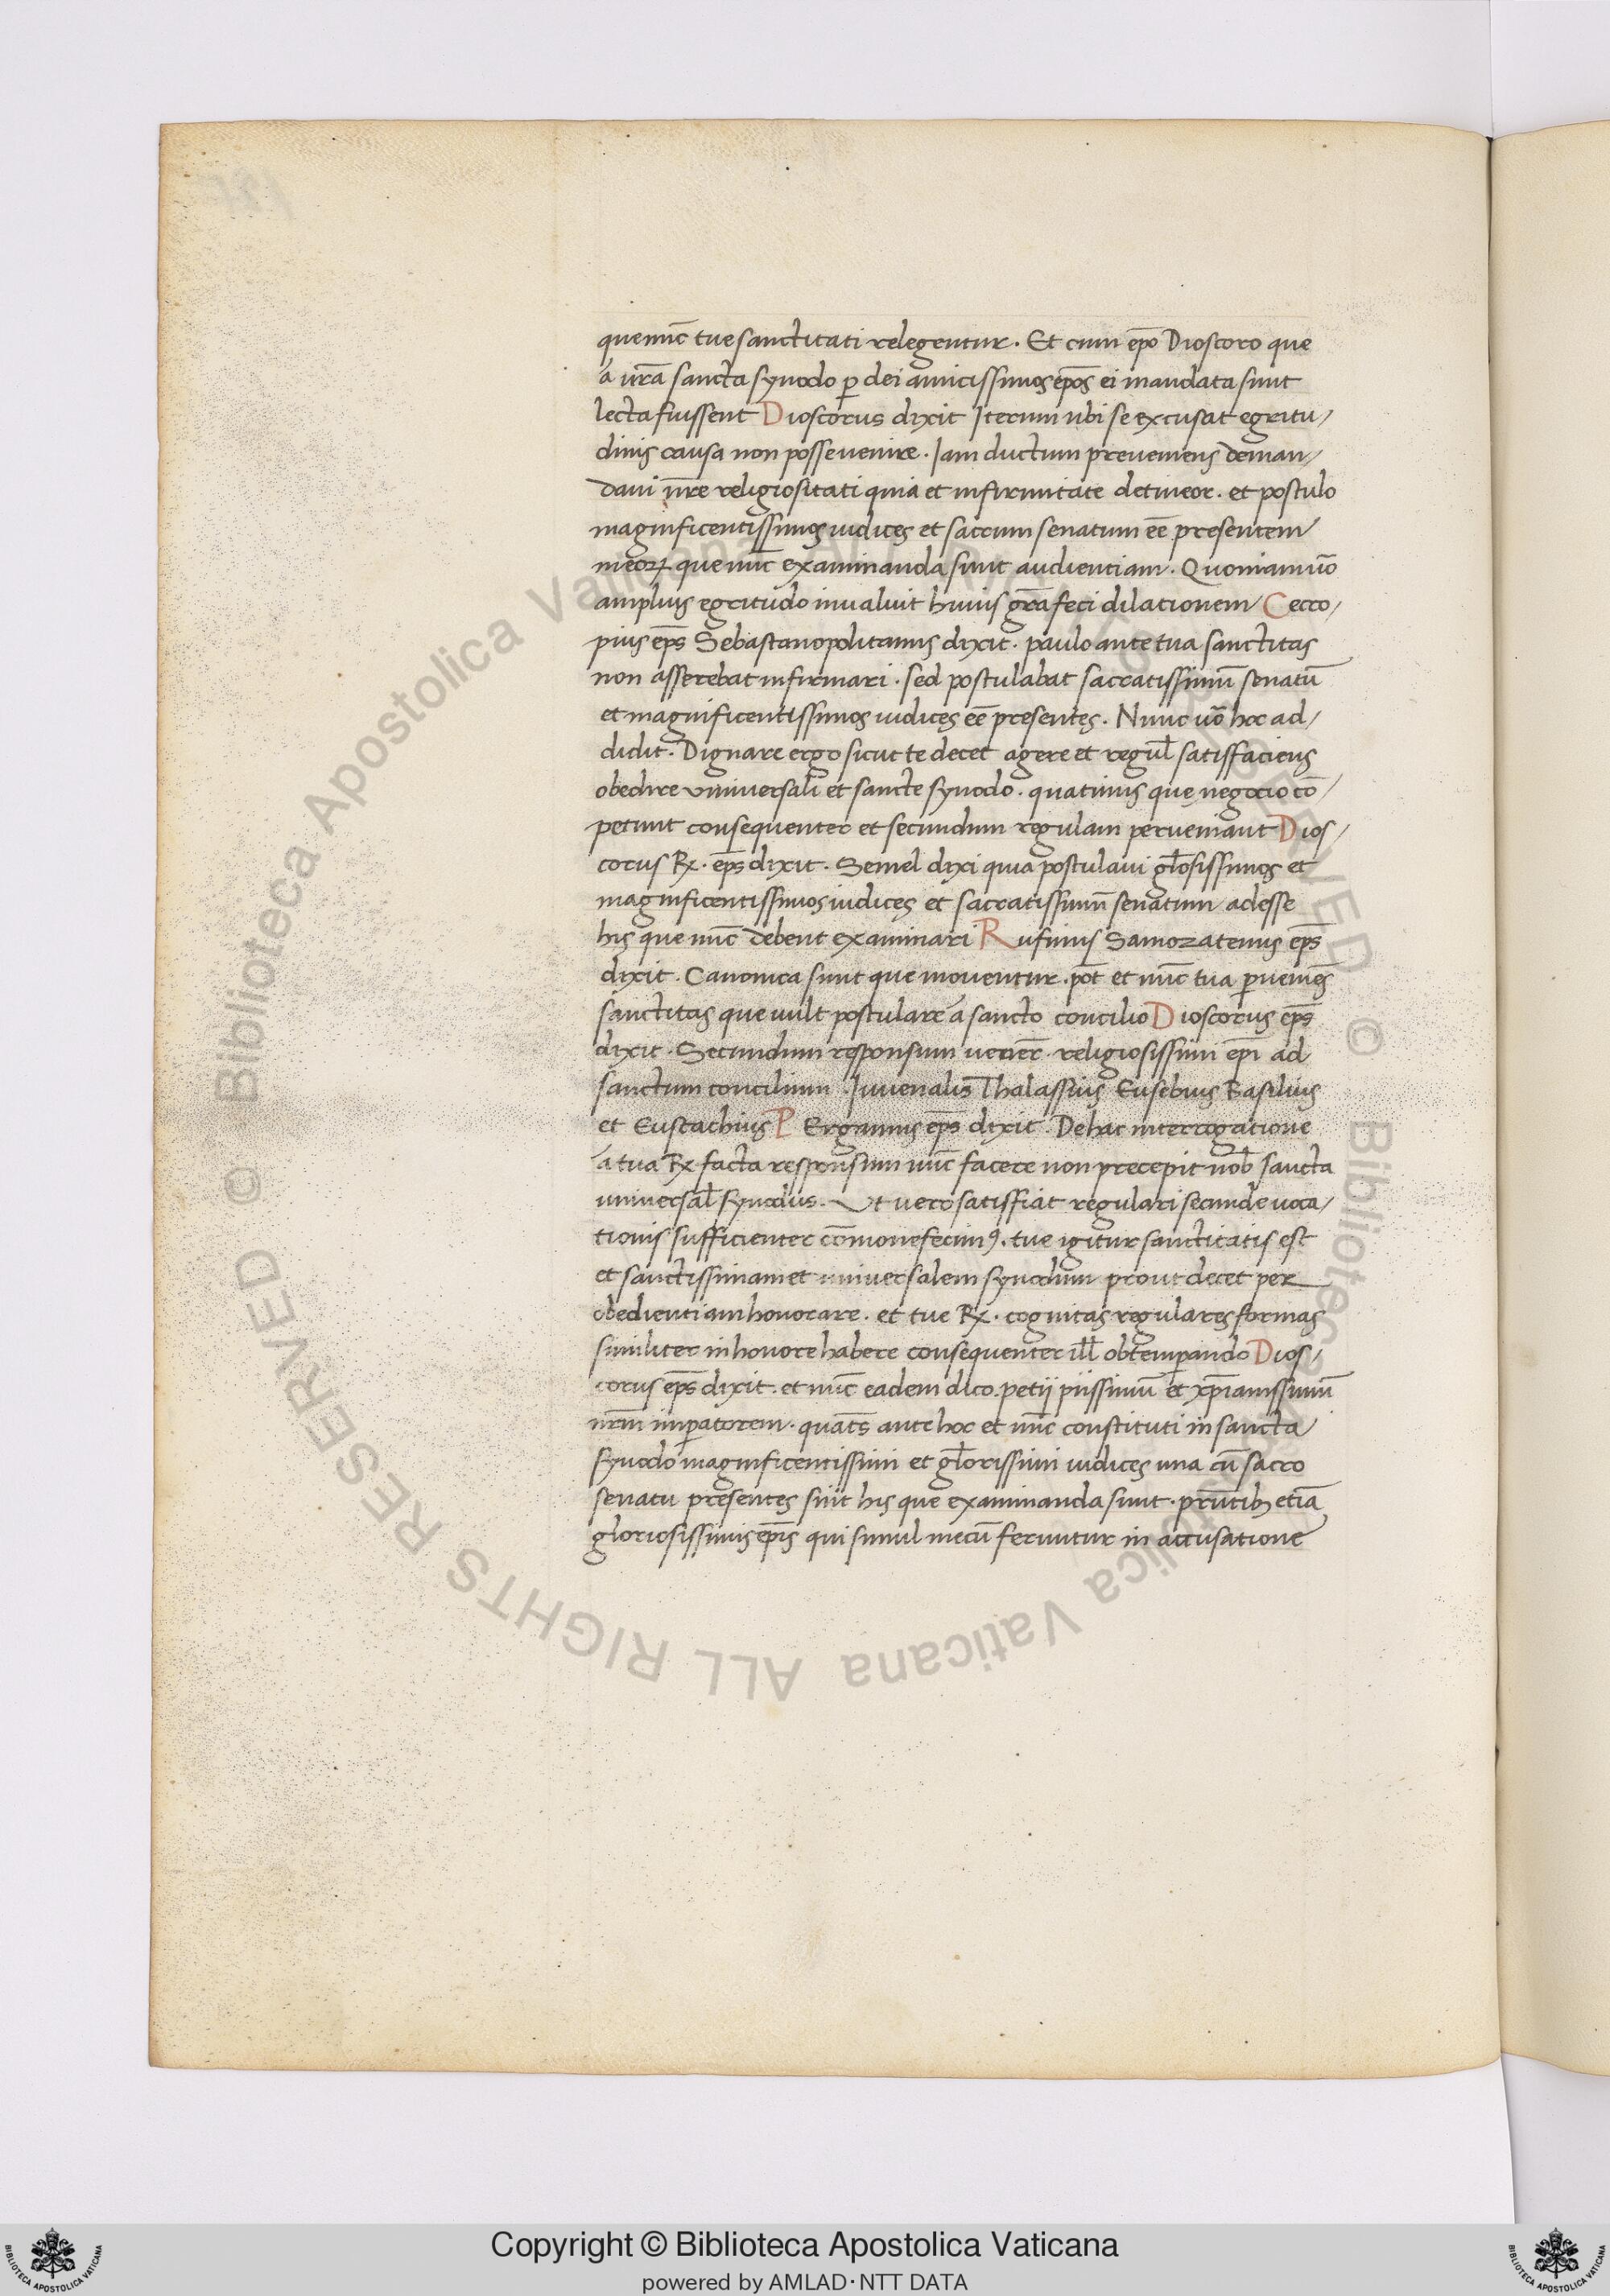 que nūc tue sanctitati relegentur. Et cum ep̄o Dioscoro que
a ur̄a sancta synodo ꝑ dei amicissimos ep̄os ei mandata sunt
lecta fuissent Dioscorus dixit Iterum ubi se excusat egritu/
dinis causa non posse uenire. Iam ductum preueniens deman/
daui ur̄e religiositati quia et infirmitate detineor. et postulo
magnificentissimos iudices et sacrum senatum eē presentem
meoꝝ que nūc examinanda sunt audientiam. Quoniam uō
amplius egritudo inualuit huius gr̄a feci dilationem Cecro/
pius ep̄s Sebastanopolitanus dixit. paulo ante tua sanctitas
non asserebat infirmari. sed postulabat sacratissimū senatū
et magnificentissimos iudices eē presentes. Nunc uō hoc ad/
didit. Dignare ergo sicut te decet agere et regul̄ satisfaciens
obedire vniuersali et sancte synodo. quatinus que negocio cō/
petunt consequenter et secundum regulam perueniant Dios/
corus Rx. ep̄s dixit. Semel dixi quia postulaui gl̄osissimos et
magnificentissimos iudices et sacratissimū senatum adesse
his que nūc debent examinari Rufinus Samozatenus ep̄s
dixit. Canonica sunt que mouentur. pōt et nūc tua ꝑueniēs
sanctitas que uult postulare a sancto concilio Dioscorus ep̄s
dixit. Secundum responsum uenier̄. religiosissimi ep̄i ad
sanctum concilium Iuuenalis Thalassius Eusebius Basilius
et Eustachius P Ergamius ep̄s dixit. De hac interrogatione
a tua Rx facta responsum nūc facere non precepit nob̄ sancta
uniuersal̄ synodus. Vt uero satisfiat regulari secunde uoca/
tionis sufficienter cōmonefecimꝰ. tue igitur sanctitatis est
et sanctissimam et uniuersalem synodum prout decet per
obedientiam honorare. et tue Rx. cognitas regulares formas
similiter in honore habere consequenter ill̄ obtemꝑando Dios/
corus ep̄s dixit. et nūc eadem dico. petij piissimū et xp̄ianissimū
nr̄m imꝑatorem. quāts ante hoc et nūc constituti in sancta
synodo magnificentissimi et gl̄orissimi iudices una cū sacro
senatu presentes sint his que examinanda sunt. pr̄ntibꝫ etiā
gloriosissimis ep̄is qui simul mecū feruntur in accusatione
Copyright © Biblioteca Apostolica Vaticana
powered by AMLAD·NTT DATA
© Biblioteca Apostolica Vaticana ALL RIGHTS RESERVED © Biblioteca Apostolica Vaticana ALL RIGHTS RESERVED
BIBLIOTECA APOSTOLICA VATICANA
BIBLIOTECA APOSTOLICA VATICANA